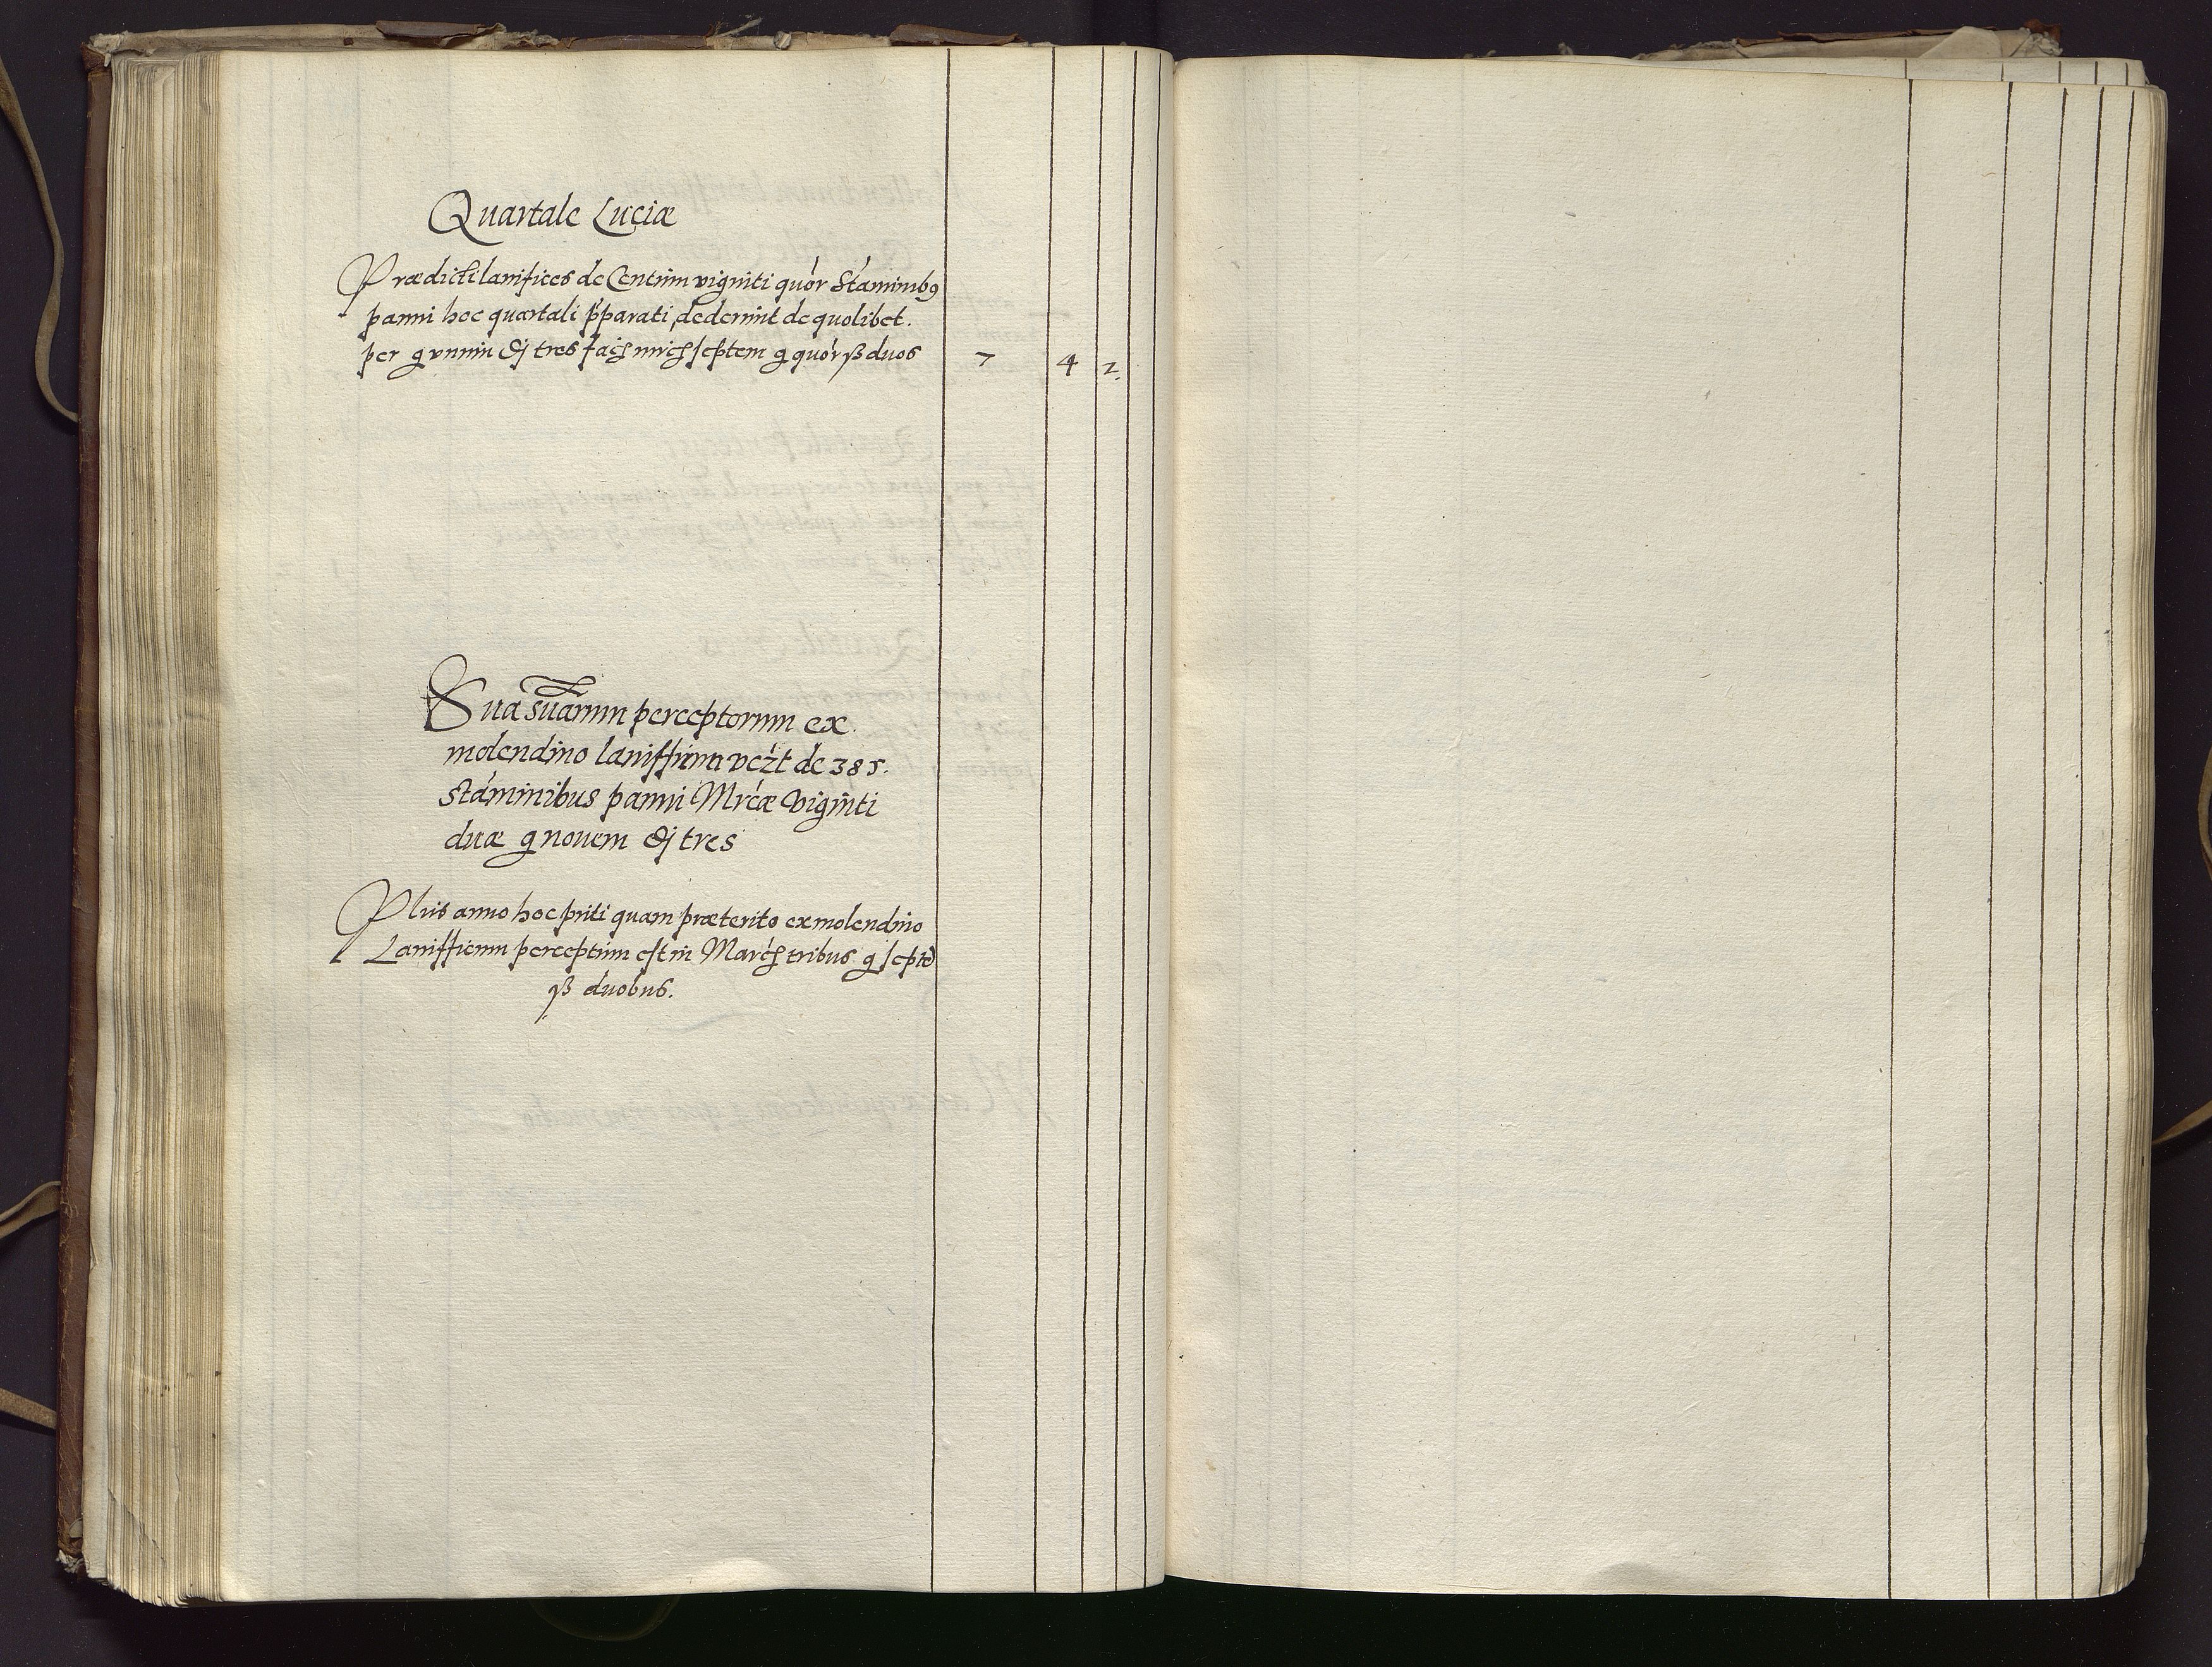 Quartale Luciæ
Prædicti lanifices de Centum viginti quòr Staminibꝫ
panni hoc quartali p̃parati, dederunt de quolibet.
per g vnum et tres facit septem g quòr ß duos 7 4 2.
Sũa sũarum perceptorum ex
molendino laniffitum vczt de 385.
Staminibus panni Mrcæ viginti
duæ g nouem tres
Plus anno hoc pñti quam præterito ex molendino
Laniffitum perceptum est in tribus g septẽ
ß duobus.